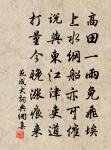 高田一雨免飛埃
上水綱船亦可催
說與東江津吏道
打量今晚漲痕來
范成大詞典網集